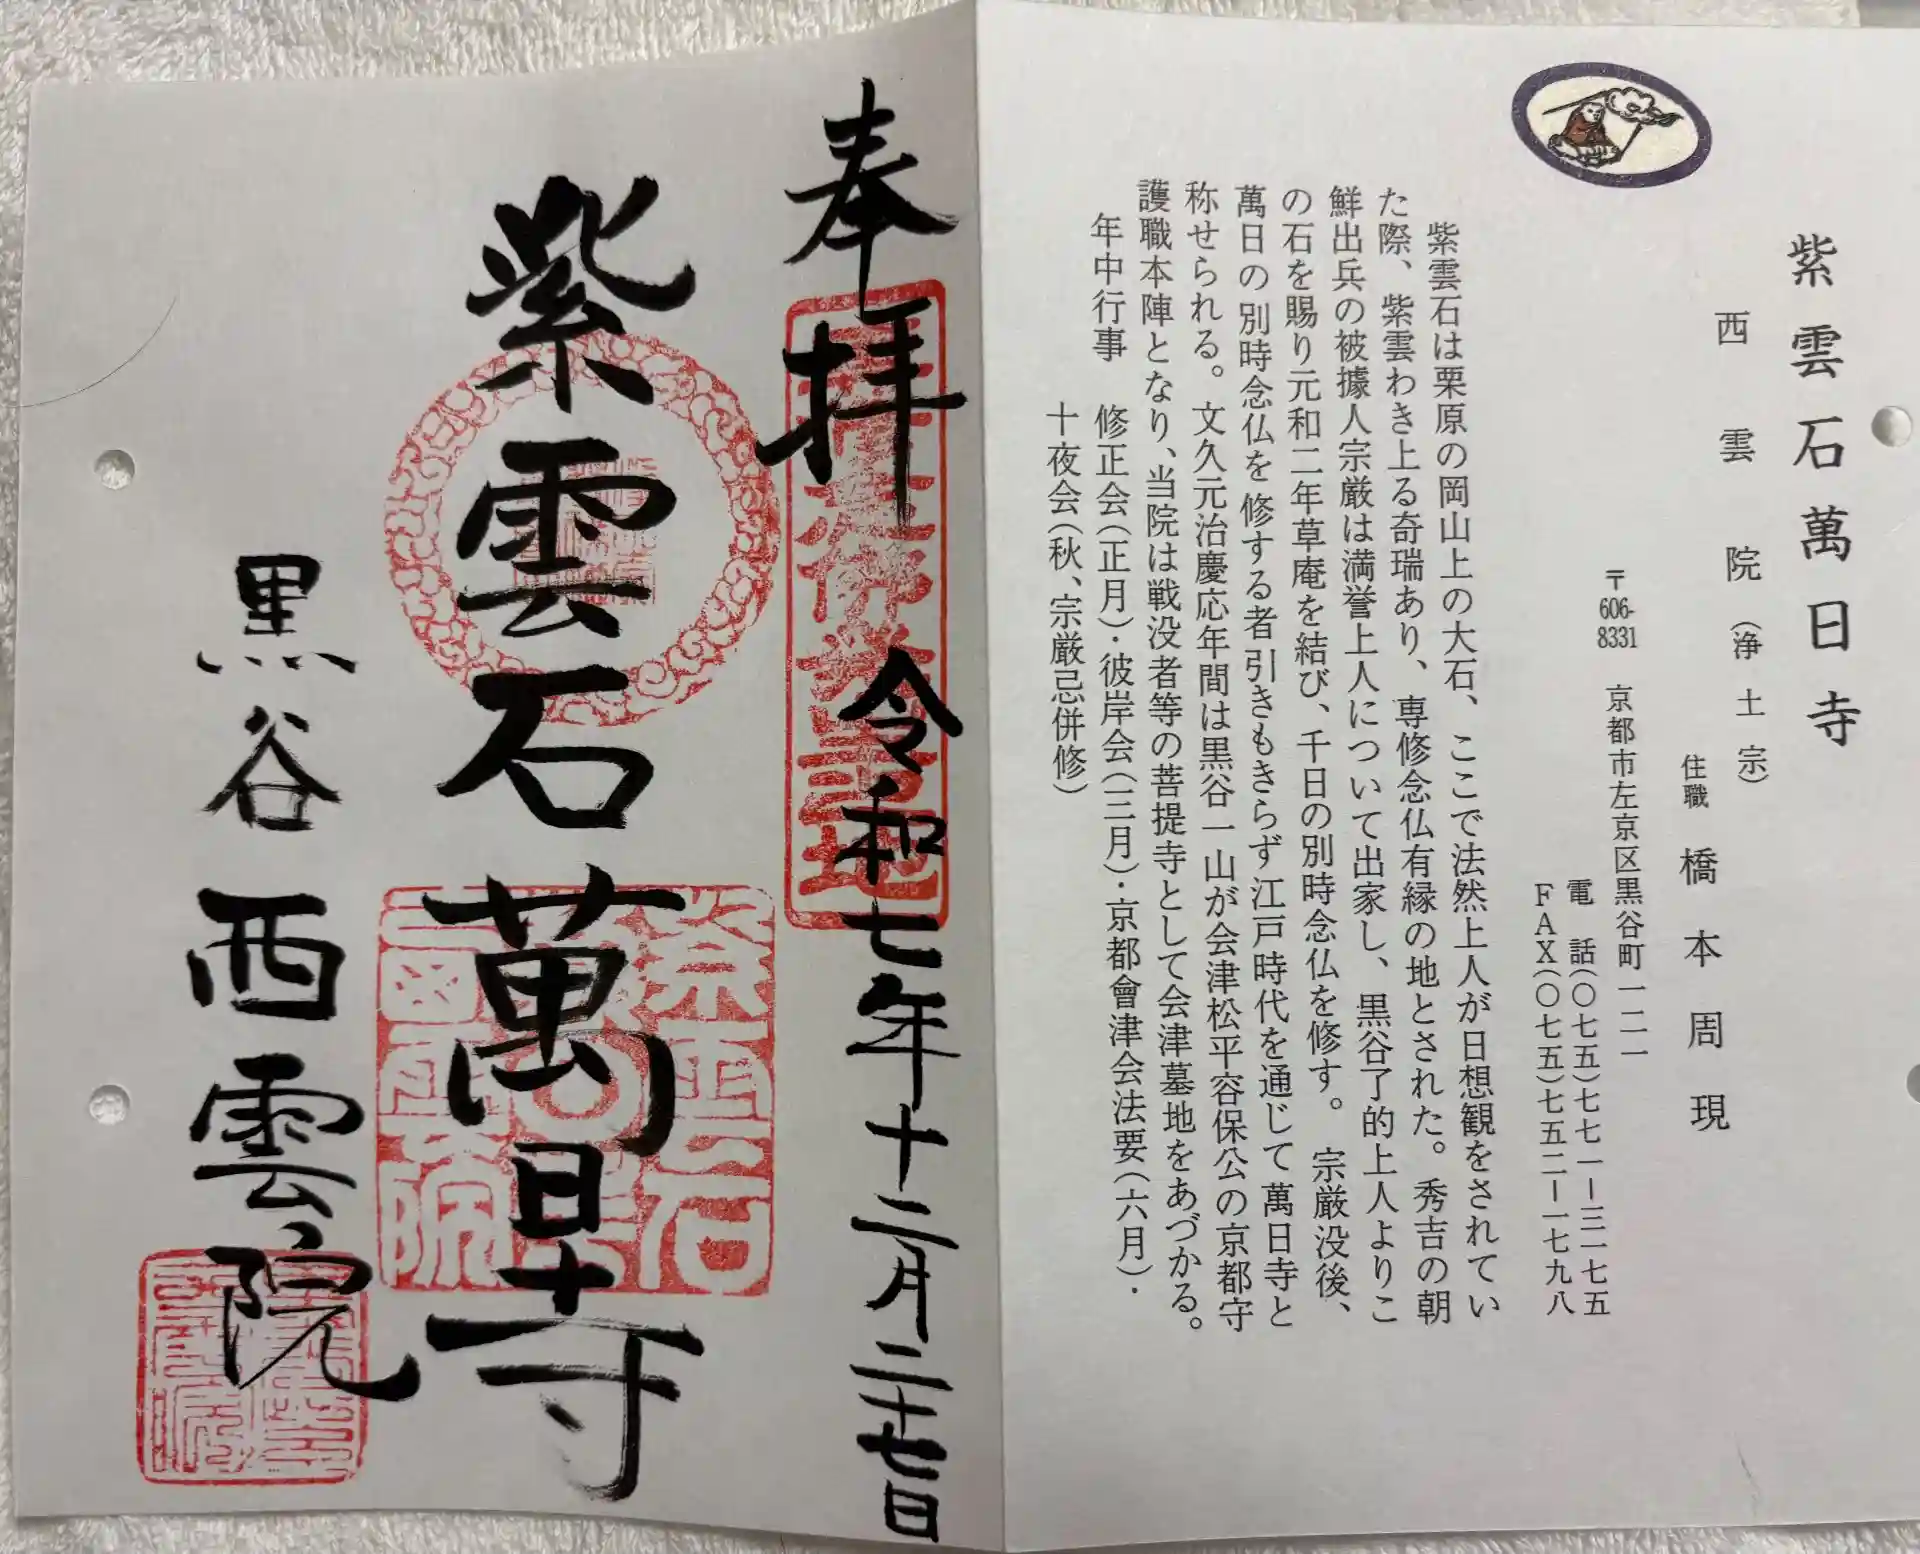 紫雲石萬日寺
西雲院(浄土宗)
住職 橋本周現
〒606-8331 京都市左京区黒谷町一二一
電話(〇七五)七七一ー三一七五
FAX(〇七五)七五二ー一七九八
紫雲石は栗原の岡山上の大石、ここで法然上人が日想観をされてい
た際、紫雲わき上る奇瑞あり、専修念仏有縁の地とされた。秀吉の朝
鮮出兵の被據人宗厳は満誉上人について出家し、黒谷了的上人よりこ
の石を賜り元和二年草庵を結び、千日の別時念仏を修す。宗厳没後、
萬日の別時念仏を修する者引きもきらず江戸時代を通じて萬日寺と
称せられる。文久元治慶応年間は黒谷一山が会津松平容保公の京都守
護職本陣となり、当院は戦没者等の菩提寺として会津墓地をあづかる。
年中行事 修正会(正月)・彼岸会(三月)・京都會津会法要(六月)・
十夜会(秋、宗厳忌併修)
奉拝 令和七年十二月二十七日
紫雲石萬日寺
黒谷西雲院